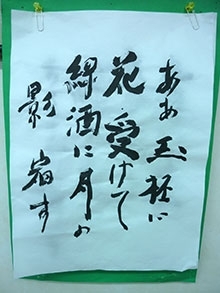 ああ玉杯に
花受けて
緑酒に月の
影宿す